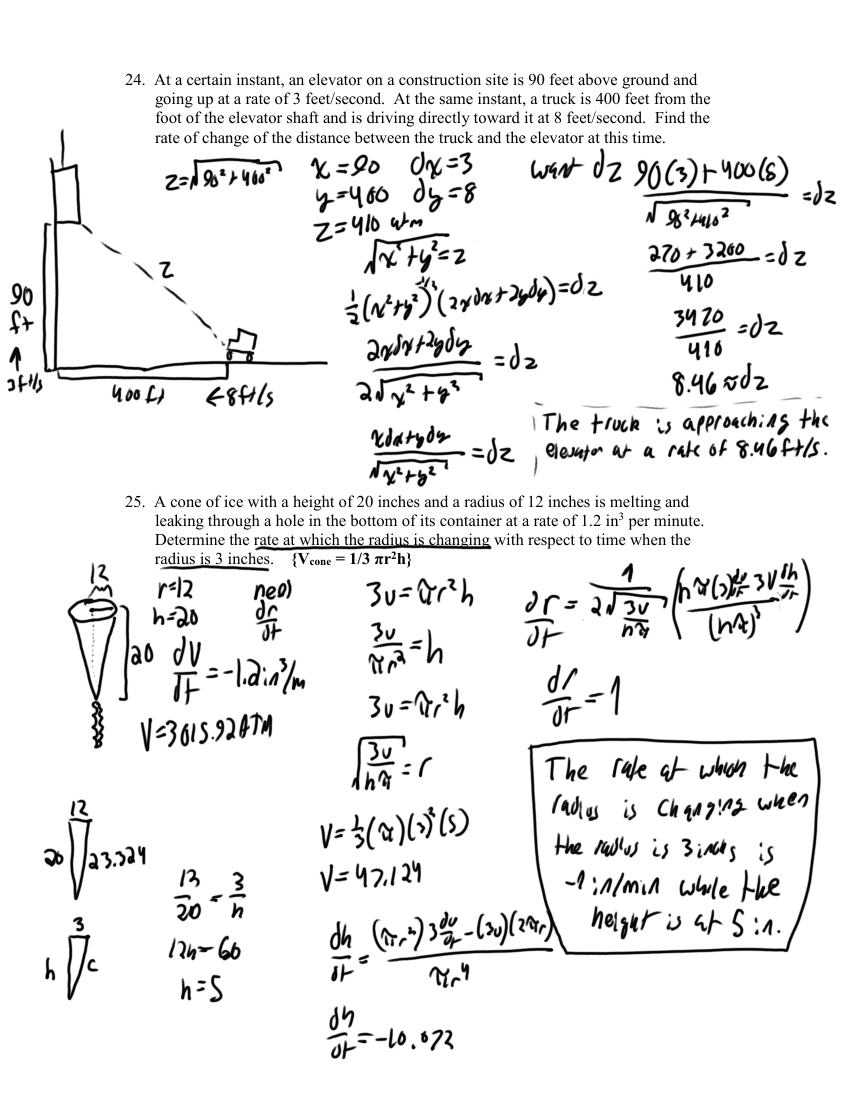 24. At a certain instant, an elevator on a construction site is 90 feet above ground and
going up at a rate of 3 feet/second. At the same instant, a truck is 400 feet from the
foot of the elevator shaft and is driving directly toward it at 8 feet/second. Find the
rate of change of the distance between the truck and the elevator at this time.
z=√90²+400²
x=90 dx=3
y=400 dy=8
z=410 atm
√x²+y²=z
½(x²+y²)(2xdx+2ydy)=dz
2xdx+2ydy / 2√x²+y² =dz
xdx+ydy / √x²+y² =dz
want dz
90(3)+400(8) / √90²+410² =dz
270+3200 / 410 =dz
3470 / 410 =dz
8.46≈dz
The truck is approaching the
elevator at a rate of 8.46ft/s.
z
90
ft
↑
3ft/s
400ft
←8ft/s
25. A cone of ice with a height of 20 inches and a radius of 12 inches is melting and
leaking through a hole in the bottom of its container at a rate of 1.2 in³ per minute.
Determine the rate at which the radius is changing with respect to time when the
radius is 3 inches. {Vcone = 1/3 πr²h}
12
20
r=12
h=20
need
dr/dt
dV/dt =-1.2in³/m
V=3015.92 ATM
12
20
23.324
3
h
c
12/20 = 3/h
12h=60
h=5
3v=πr²h
3v/πr² =h
3v=πr²h
√3v/hπ =r
V=⅓(π)(3)²(5)
V=47.124
dh/dt = (πr²)3dv/dt-(3v)(2πr) / πr⁴
dh/dt =-10.072
dr/dt = 1/2√3v/hπ
dr/dt =1
The rate at which the
radius is changing when
the radius is 3 inches is
-1in/min while the
height is at 5in.